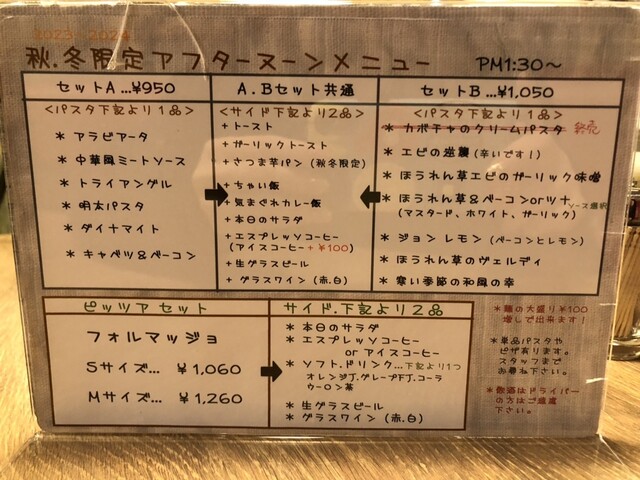 2023 2024
秋.冬限定アフターヌーンメニュー PM1:30～
セットA...¥950
<パスタ下記より1品>
* アラビアータ
* 中華風ミートソース
* トライアンゲル
* 明太パスタ
* ダイナマイト
* キャベツ&ベーコン
A.Bセット共通
<サイド下記より2品>
+トースト
+ガーリックトースト
+さつま芋パン(秋冬限定)
+ちゃい飯
+気まぐれカレー飯
+本日のサラダ
+エスプレッソコーヒー
(アイスコーヒー+¥100)
+生グラスビール
+グラスワイン(赤.白)
セットB...¥1,050
<パスタ下記より1品>
* カボチャのクリームパスタ 終売
* エビの逆襲(辛いです!)
* ほうれん草エビのガーリック味噌
* ほうれん草&ベーコンorツナ ソース選択
(マスタード、ホワイト、ガーリック)
* ジョンレモン(ベーコンとレモン)
* ほうれん草のヴェルディ
* 寒い季節の和風の幸
ピッツアセット
フォルマッジョ
Sサイズ... ¥1,060
Mサイズ... ¥1,260
サイド.下記より2品
* 本日のサラダ
* エスプレッソコーヒー
or アイスコーヒー
* ソフト.ドリンク...下記より1つ
オレンジJ.グレープFJ.コーラ
ウーロン茶
* 生グラスビール
* グラスワイン(赤.白)
*麺の大盛り¥100
増しで出来ます!
*単品パスタや
ピザ有ります。
スタッフまで
お尋ね下さい。
*飲酒はドライバー
の方はご遠慮
下さい。